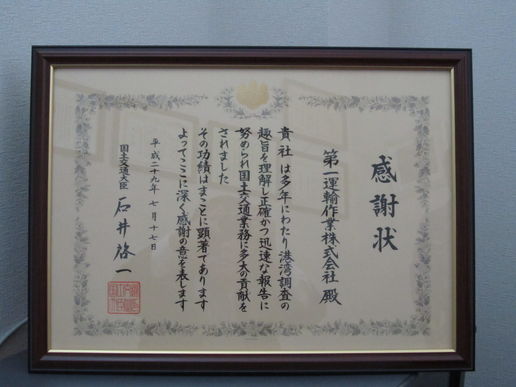 感謝状
第一運輸作業株式会社 殿
貴社は多年にわたり港湾調査の
趣旨を理解し正確かつ迅速な報告に
努められ国土交通業務に多大の貢献を
されました
その功績はまことに顕著であります
よってここに深く感謝の意を表します
平成二十九年七月十七日
国土交通大臣 石井啓一